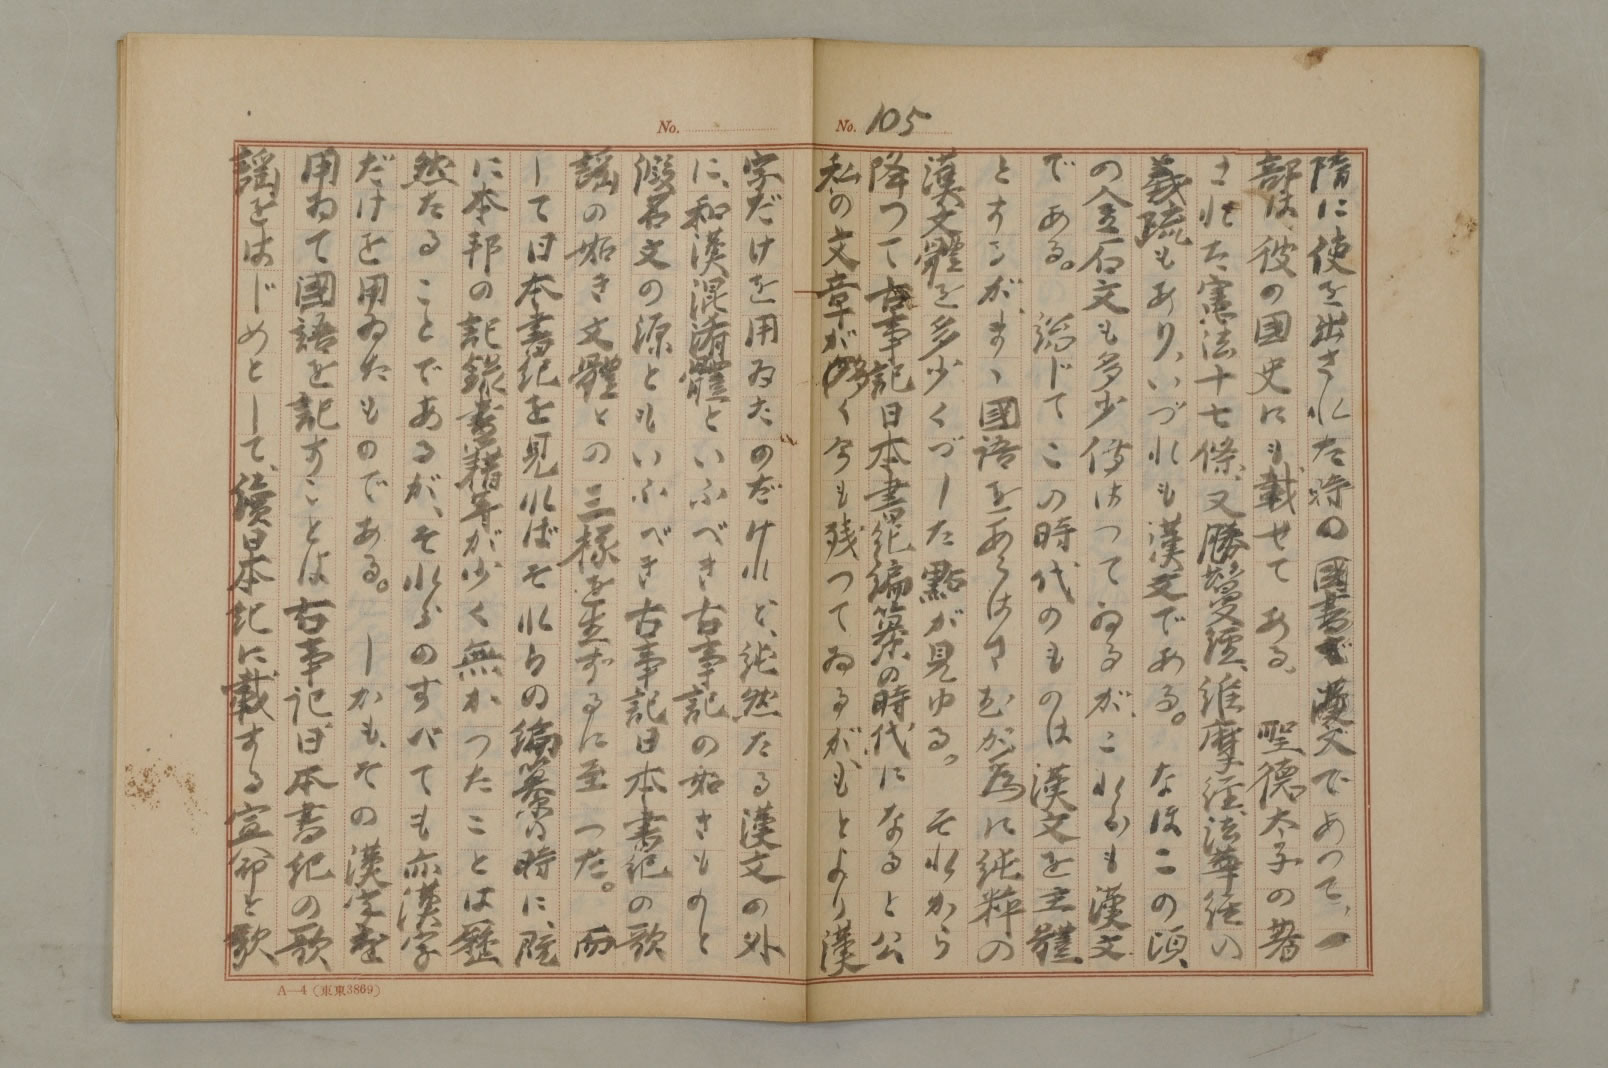 No. 105
隋に使を出された時の國書で漢文であつて、一
部は、彼の國史にも載せてある。聖德太子の著
された憲法十七條、又勝鬘經、維摩經、法華經の
義疏もあり、いづれも漢文である。なほこの頃
の金石文も多少傳はつてゐるが、これらも漢文
である。總じてこの時代のものは漢文を主體
とするが、まゝ國語をあらはさむが爲に純粹の
漢文體を多少くづした點が見ゆる。それから
降つて古事記日本書紀編纂の時代になると公
私の文章が多く今も殘つてゐるが、もとより漢
No.
字だけを用ゐたのだけれど、純然たる漢文の外
に、和漢混淆體といふべき古事記の如きものと
假名文の源ともいふべき古事記日本書紀の歌
謠の如き文體との三樣を生ずるに至つた。而
して日本書紀を見ればそれらの編纂の時に既
に本邦の記錄書籍等が少く無かつたことは歷
然たることであるが、それらのすべても亦漢字
だけを用ゐたものである。しかも、その漢字を
用ゐて國語を記すことは古事記日本書紀の歌
謠をはじめとして、續日本紀に載する宣命と歌
A—4（東東3869）